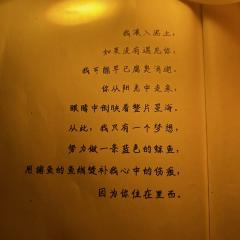 我混入泥土，
如果没有遇见你，
我可能早已腐臭消逝。
你从阳光中走来，
眼睛中倒映着整片星海。
从此，我只有一个梦想，
努力做一条蓝色的鲸鱼，
用捕鱼的鱼线缝补我心中的伤痕，
因为你住在里面。